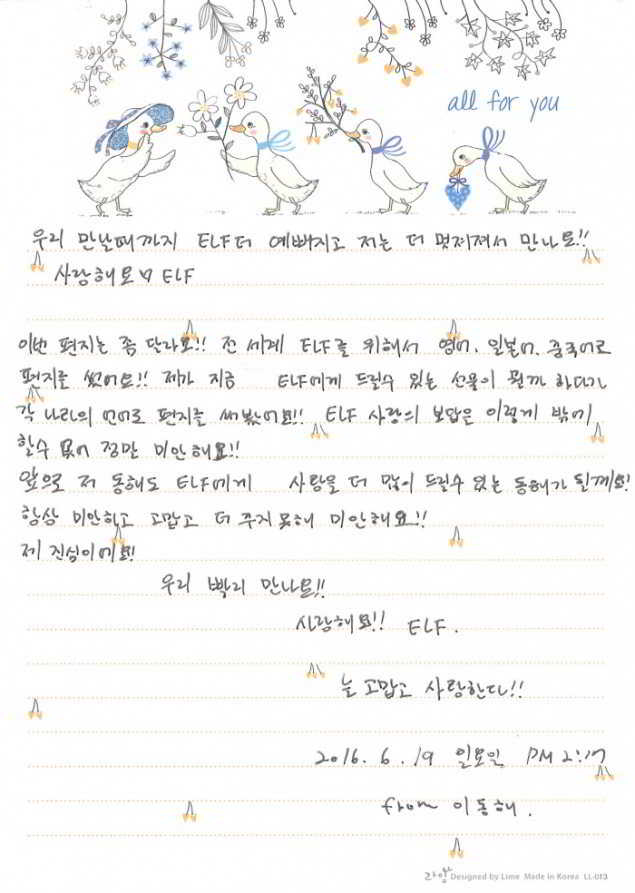 all for you
우리 만날때까지 ELF 더 예뻐지고 저는 더 멋져져서 만나요!!
사랑해요 ELF
이번 편지는 좀 달라요!! 전 세계 ELF를 위해서 영어, 일본어, 중국어로
편지를 썼어요!! 제가 지금 ELF에게 드릴수 있는 선물이 뭘까 하다가
각 나라의 언어로 편지를 써봤어요!! ELF 사랑의 보답을 이렇게 밖에
할수 없어 정말 미안해요!!
앞으로 저 동해도 ELF에게 사랑을 더 많이 드릴수 있는 동해가 될께요!
항상 미안하고 고맙고 더 주지 못해 미안해요!!
제 진심이에요!!
우리 빨리 만나요!!
사랑해요!! ELF.
늘 고맙고 사랑한다!!
2016. 6. 19 일요일 PM 2:17
from 이동해.
라임 Designed by Lime Made in Korea LL-013